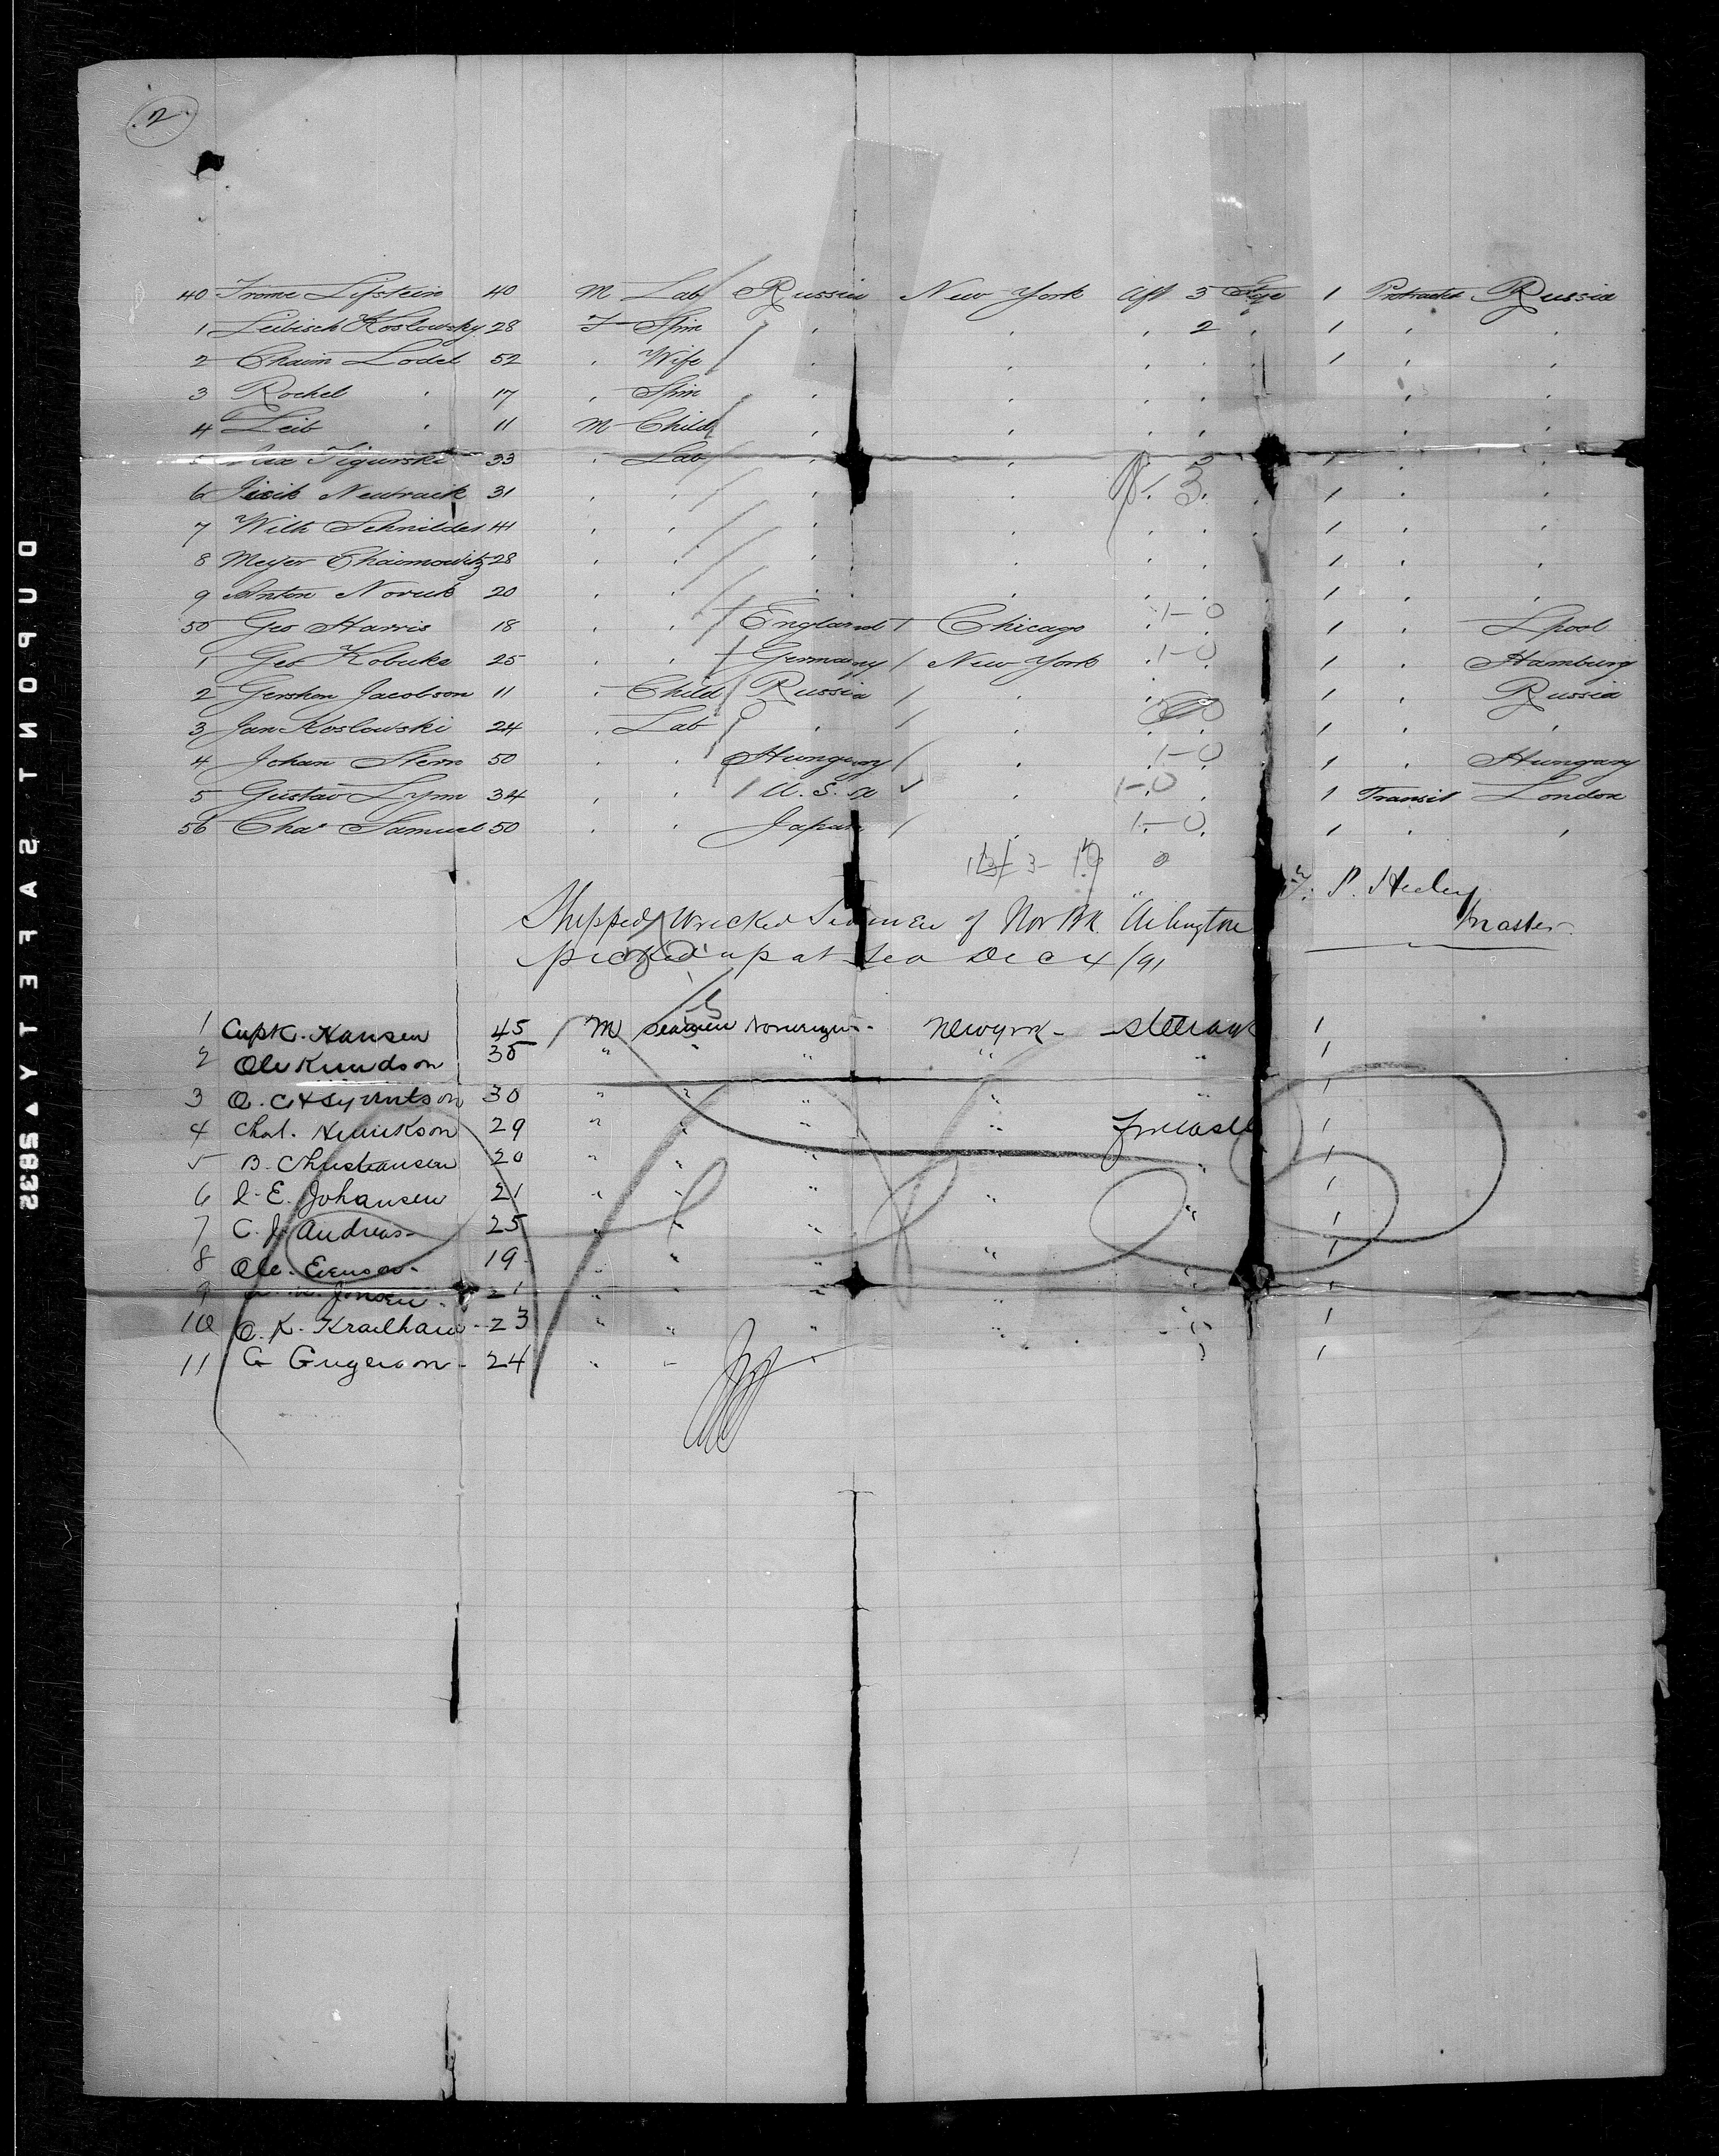 2
40 Frome Lifstein 40 M Lab Russia New York Aft 3 Stge 1 Protracted Russia
1 Leibisch Koslowsky 28 F Spin 2 1
2 Chaim Lodel 52 Wife 1
3 Rochel 17 Spin
4 Leib 11 M Child
5 Alex Tigurski 33 Lab 1
6 Neutraik 31 3 1
7 Wilh Schnilder 41 1
8 Meyer Chaimowitz 28 1
9 Anton Novuk 20 1
50 Geo Harris 18 England Chicago 1-0 1 Lpool
1 Geo Kobuke 25 Germany New York 1-0 1 Hamburg
2 Gershon Jacobson 11 Child Russia 1 Russia
3 Jan Koslowski 24 Lab 1
4 Johan Stern 50 Hungary 1-0 1 Hungary
5 Gustav Lynn 34 U.S.A 1-0 1 Transit London
56 Chas Samuel 50 Japan 1-0 1
P. Healey
Master
Shipped Wrecked Seamen of Nor Bk "Arlington
picked up at Sea Dec 4/91
1 Capt K. Hansen 45 M Seamen Norwegian New York Steerage 1
2 Ole Knudson 35 " " " " " 1
3 O. 30 " " " " " 1
4 Chal. Henrikson 29 " " " " Forecastle 1
5 B. Christiansen 20 " " " " 1
6 E. Johansen 21 " " " " 1
7 C. J. Andreas 25 " " " " 1
8 Ole. Evensen 19 " " " 1
9 Jonsen 21 " " " " 1
10 O. K. Kraelhau 23 " " " " " 1
11 G Gugerson 24 " " 1
DUPONT SAFETY 5832